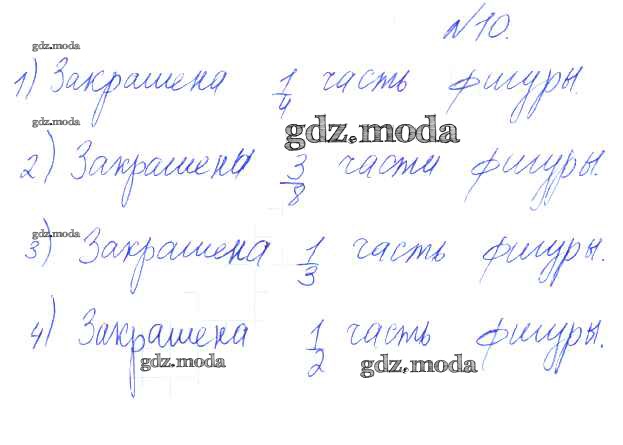 №10.
gdz.moda
1) Закрашена 1/4 часть фигуры.
gdz.moda
gdz.moda
2) Закрашены 3/8 части фигуры.
gdz.moda
3) Закрашена 1/3 часть фигуры.
4) Закрашена 1/2 часть фигуры.
gdz.moda
gdz.moda